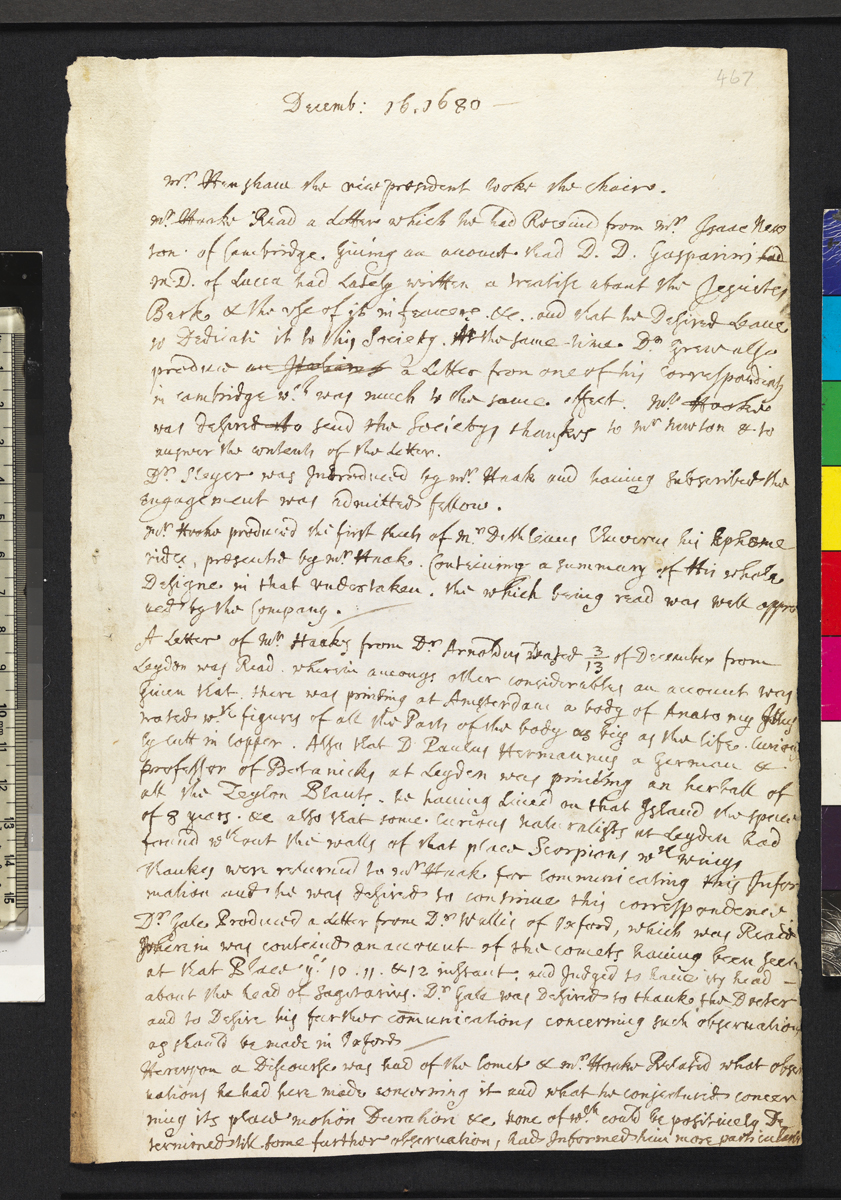 467
Decemb: 16. 1680
mr. Henshaw the vice president tooke the chaire.
mr. Hooke Read a Letter which he had Receiud from mr. Isaac New
ton of Cambridge. Giuing an account that D. D. Gasparini had
M.D. of Lucca had Lately written a treatise about the Jesuites
Bark & the vse of it in feauers. &c. and that he Desired Leaue
to Dedicate it to this Society. At the same time Dr. Grew also
produce an Italian a Letter from one of his correspondents
in Cambridge wch was much to the same effect. mr. Hooke
was desired to send the Societys thankes to mr newton & to
answer the contents of the Letter.
Dr. Slayer was Introduced by mr. Haak and hauing subscribed the
engagement was admitted fellow.
mr. Hooke produced the first sheet of mr. Dethleuus Cluuerus his Epheme
rides, presented by mr Haak. Conteining a summary of His whole
Designe in that vndertaken. the which being read was well appro
ued by the Company.
A Letter of mr. Haaks from Dr Arnoldus Dated 3/13 of December from
Leyden was Read. wherin amongs other considerables an account was
Giuen that there was printing at Amsterdam a body of Anatomy Illus
trated wth figures of all the Parts of the body as big as the life. Curious
ly cutt in copper. Also that D. Paulus Hermannus a German &
professor of Botanicks at Leyden was printing an herball of
all the Zeylon Plants. he hauing Liued on that Island the space
of 8 years. &c also that some Curious naturalists at Leyden had
found wthout the walls of that place Scorpions wth wings
thankes were returned to mr. Haak for communicating this Infor
mation and he was desired to continue this correspondence.
Dr. Gale Produced a Letter from Dr. Wallis of Oxford, which was Read
wherin was conteined an account of the comets hauing been seen
at that Place ye. 10. 11. & 12 instant. and Judged to haue its head
about the head of Sagitarius. Dr. Gale was Desired to thanke the Docter
and to Desire his further comunications concerning such obseruations
as should be made in Oxford
Herevpon a Discourse was had of the Comet & mr. Hooke Related what obser
uations he had here made concerning it and what he coniectured concer
ning its place motion Duration &c. none of wch could be positiuely De
termined till some further obseruation, had Informed him more particularly